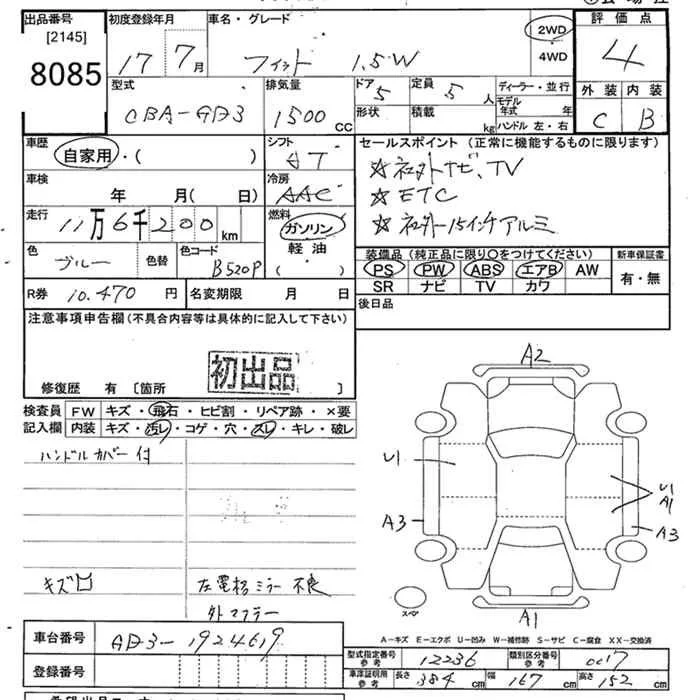 出品番号 初度登録年月 車名・グレード 評価点
[2145]
8085
17 7月 フィット 1.5W 2WD 4WD 4
型式 排気量 ドア 定員 ディーラー・並行 外装 内装
CBA-GD3 1500 CC 5 5人 モデル年式 年 C B
形状 積載 kg ハンドル 左・右
車歴 シフト セールスポイント(正常に機能するものに限ります)
自家用・( ) AT ☆ ネオットナビ、TV
車検 冷房 ☆ ETC
年 月(日) AAC
走行 燃料 ☆ 社外15インチアルミ
11万6千200km ガソリン
軽油
( ・ )
色 色替 色コード 装備品(純正品に限り○をつけてください) 新車保証書
ブルー B520P PS PW ABS エアB AW 有・無
SR ナビ TV カワ
R券 10.470円 名変期限 月 日 後日品
注意事項申告欄(不具合内容等は具体的に記入して下さい)
初出品
修復歴 有 〔箇所 〕
検査員 FW キズ・飛石・ヒビ割・リペア跡・×要
記入欄 内装 キズ・汚レ・コゲ・穴・スレ・キレ・破レ
ハンドルカバー付
キズ
左電格ミラー不良
外マフラー
A2
U1
U1
A1
A3
A3
スペア
A1
A-キズ E-エクボ U-凹み W-補修跡 S-サビ C-腐食 XX-交換済
車台番号 GD3-1924619
登録番号
型式指定番号 参考 12236 類別区分番号 参考 0017
車庫証明用 参考 長さ 384cm 幅 167cm 高さ 152cm